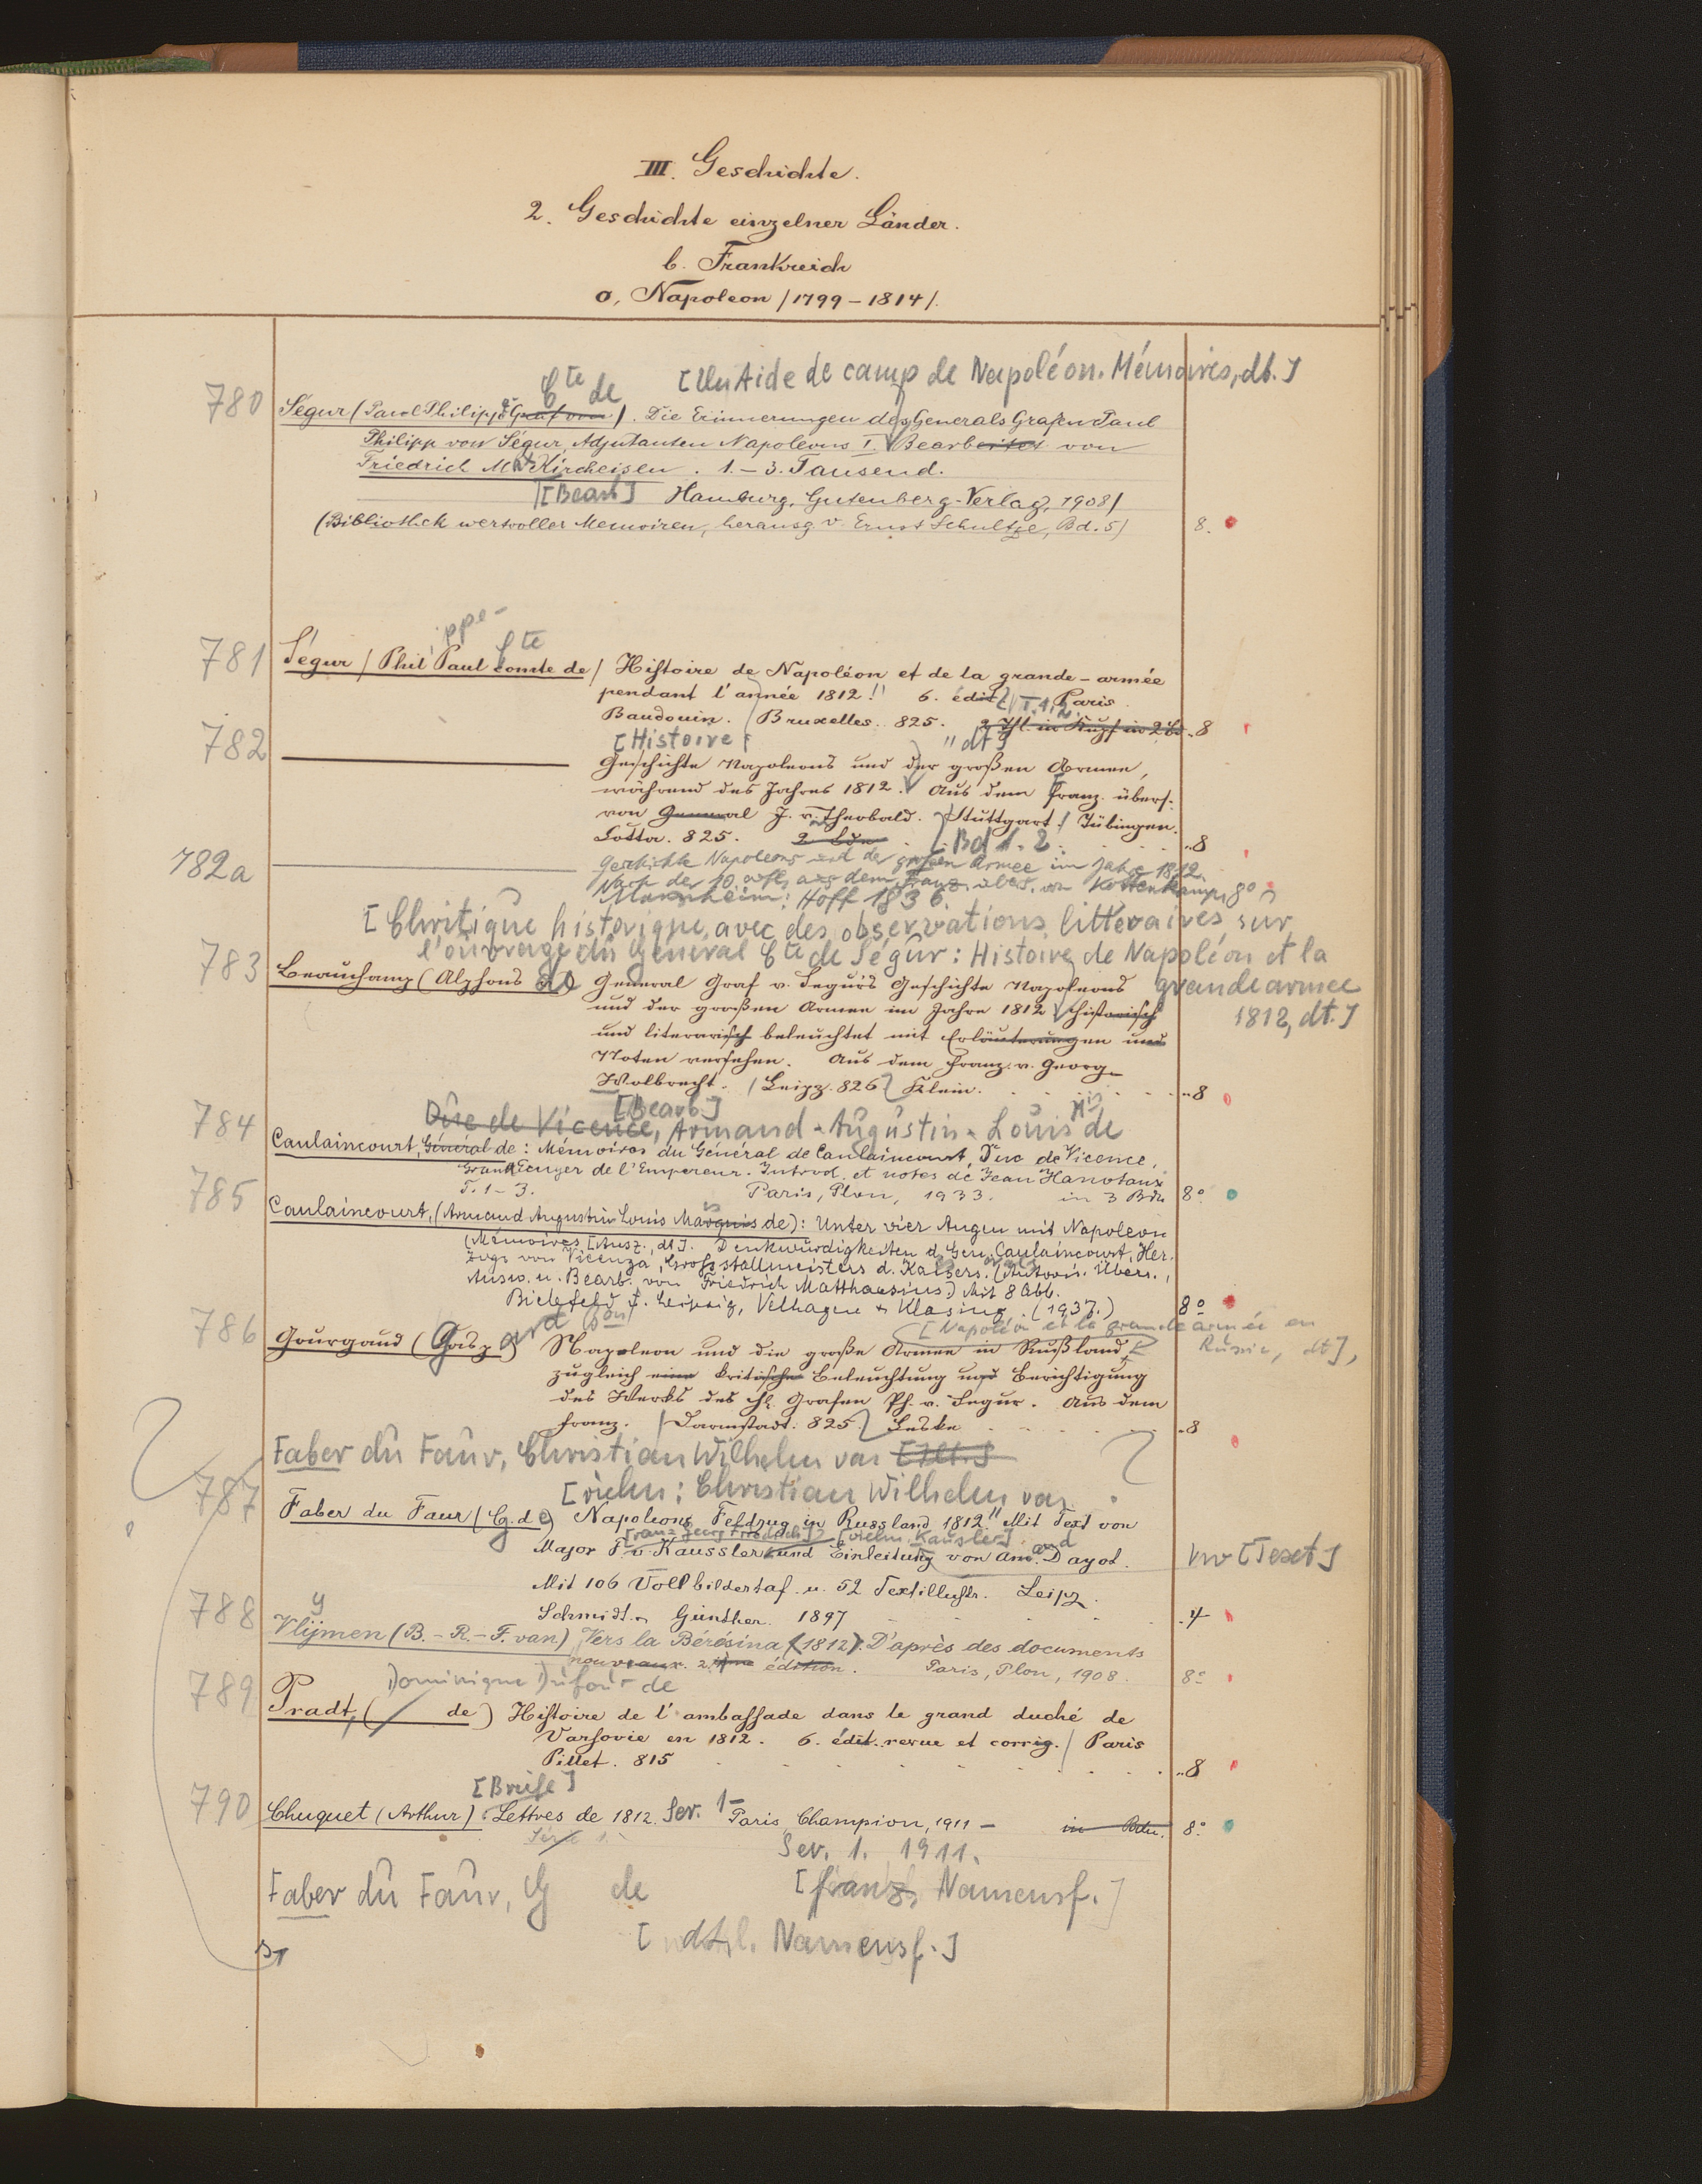 III. Geschichte.
2. Geschichte einzelner Länder.
b. Frankreich
o, Napoleon /1799–1814/.
[Un Aide de camp de Napoléon. Mémoires, dt.]
Cte de
780 Ségur (Paul Philippe Graf von). Die Erinnerungen des Generals Grafen Paul
Philipp von Ségur, Adjutanten Napoleons I. Bearbeitet von
Friedrich M. Kircheisen. 1.–3. Tausend.
[Bearb] Hamburg, Gutenberg-Verlag, 1908/
(Bibliothek wertvoller Memoiren, herausg. v. Ernst Schultze, Bd. 5) 8.
ippe- Cte
781 Ségur / Phil. Paul comte de / Histoire de Napoléon et de la grande-armée
pendant l'année 1812. 6. édit. T. 1.2. Paris
Baudouin. / Bruxelles. 825. 8
[Histoire " dt]
782 Geschichte Napoleons und der großen Armee,
während des Jahres 1812. Aus dem Franz. übers.
von General J. v. Theobald. Stuttgart / Tübingen.
Cotta. 825. 2 Bde Bd 1. 2. 8
782a Geschichte Napoleons und der großen Armee im Jahre 1812.
Nach der 10. Aufl. aus dem Franz. übers. von Kottenkamp, 8°
Mannheim: Hoff 1836.
[Chritique historique, avec des observations littéraires sur
l'ouvrage du Général Cte de Ségur: Histoire de Napoléon et la
grande armee
1812, dt.]
783 Beauchamp (Alphons de) General Graf v. Segur's Geschichte Napoleons
und der großen Armee im Jahre 1812 historisch
und literarisch beleuchtet mit Erläuterungen und
Noten versehen. Aus dem Franz. v. Georg
Wolbrecht. / Leipz. 826 Klein. 8
[Bearb.]
Duc de Vicence, Armand-Augustin-Louis Mis de
784 Caulaincourt, Général de: Mémoires du Général de Caulaincourt, Duc de Vicence,
Grand Ecuyer de l'Empereur. Introd. et notes de Jean Hanotaux
T. 1–3. Paris, Plon, 1933. in 3 Bdn 8°
785 Caulaincourt, (Armand Augustin Louis Marquis de): Unter vier Augen mit Napoleon
(Mémoires [Ausz., dt]. Denkwürdigkeiten d. Gen. Caulaincourt, Her-
zogs von Vicenza, Großstallmeisters d. Kaisers. (Autoris. Übers.,
Ausw. u. Bearb. von Friedrich Matthaesius.) Mit 8 Abb.
Bielefeld u. Leipzig, Velhagen & Klasing. (1937.) 8°
ard Bon [Napoléon et la grande armée en
Russie, dt],
786 Gourgaud (Gasp.) Napoleon und die große Armee in Rußland,
zugleich eine kritische Beleuchtung und Berichtigung
des Werks des H. Grafen Ph. v. Segur. Aus dem
Franz. / Darmstadt. 825. Leske 8
Faber du Faur, Christian Wilhelm von
[vielm: Christian Wilhelm von
787 Faber du Faur (G. de) Napoleons Feldzug in Russland 1812. Mit Text von
[Franz Georg Friedrich] [vielm. Kausler] and
Major F. v. Kaussler und Einleitung von Am. Dayot. vw [Text]
Mit 106 Vollbildertaf. u. 52 Textillustr. Leipz.
Schmidt u. Günther. 1897 4
788 Vlijmen (B.–R.–F. van) Vers la Bérésina (1812). D'après des documents
nouveaux. 2. ème édition. Paris, Plon, 1908. 8°
Dominique Dufour de
789 Pradt, ( de) Histoire de l'ambassade dans le grand duché de
Varsovie en 1812. 6. édit. revue et corrig. / Paris
Pillet. 815 8
[Briefe]
790 Chuquet (Arthur). Lettres de 1812. Ser. 1– Paris, Champion, 1911 – in Bdn. 8°
Série 1
Ser. 1. 1911.
Faber du Faur, G de [franz. Namensf.]
[ dt. Namensf.]